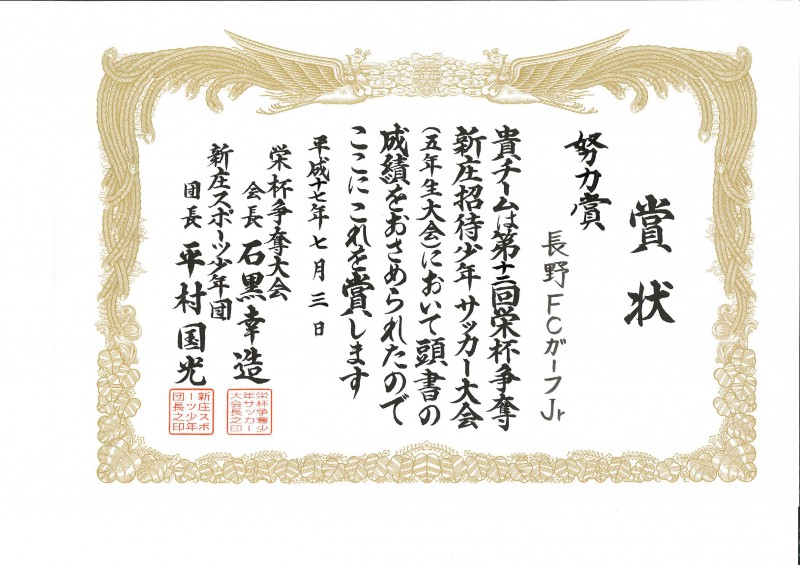 賞状
努力賞
長野FCガーフJr
貴チームは第十二回栄杯争奪
新庄招待少年サッカー大会
(五年生大会)において頭書の
成績をおさめられたので
ここにこれを賞します
平成十七年七月三日
栄杯争奪大会
会長 石黒幸造
新庄スポーツ少年団
団長 平村国光
栄杯争奪少
年サッカー
大会長之印
新庄スポ
ーツ少年
団長之印